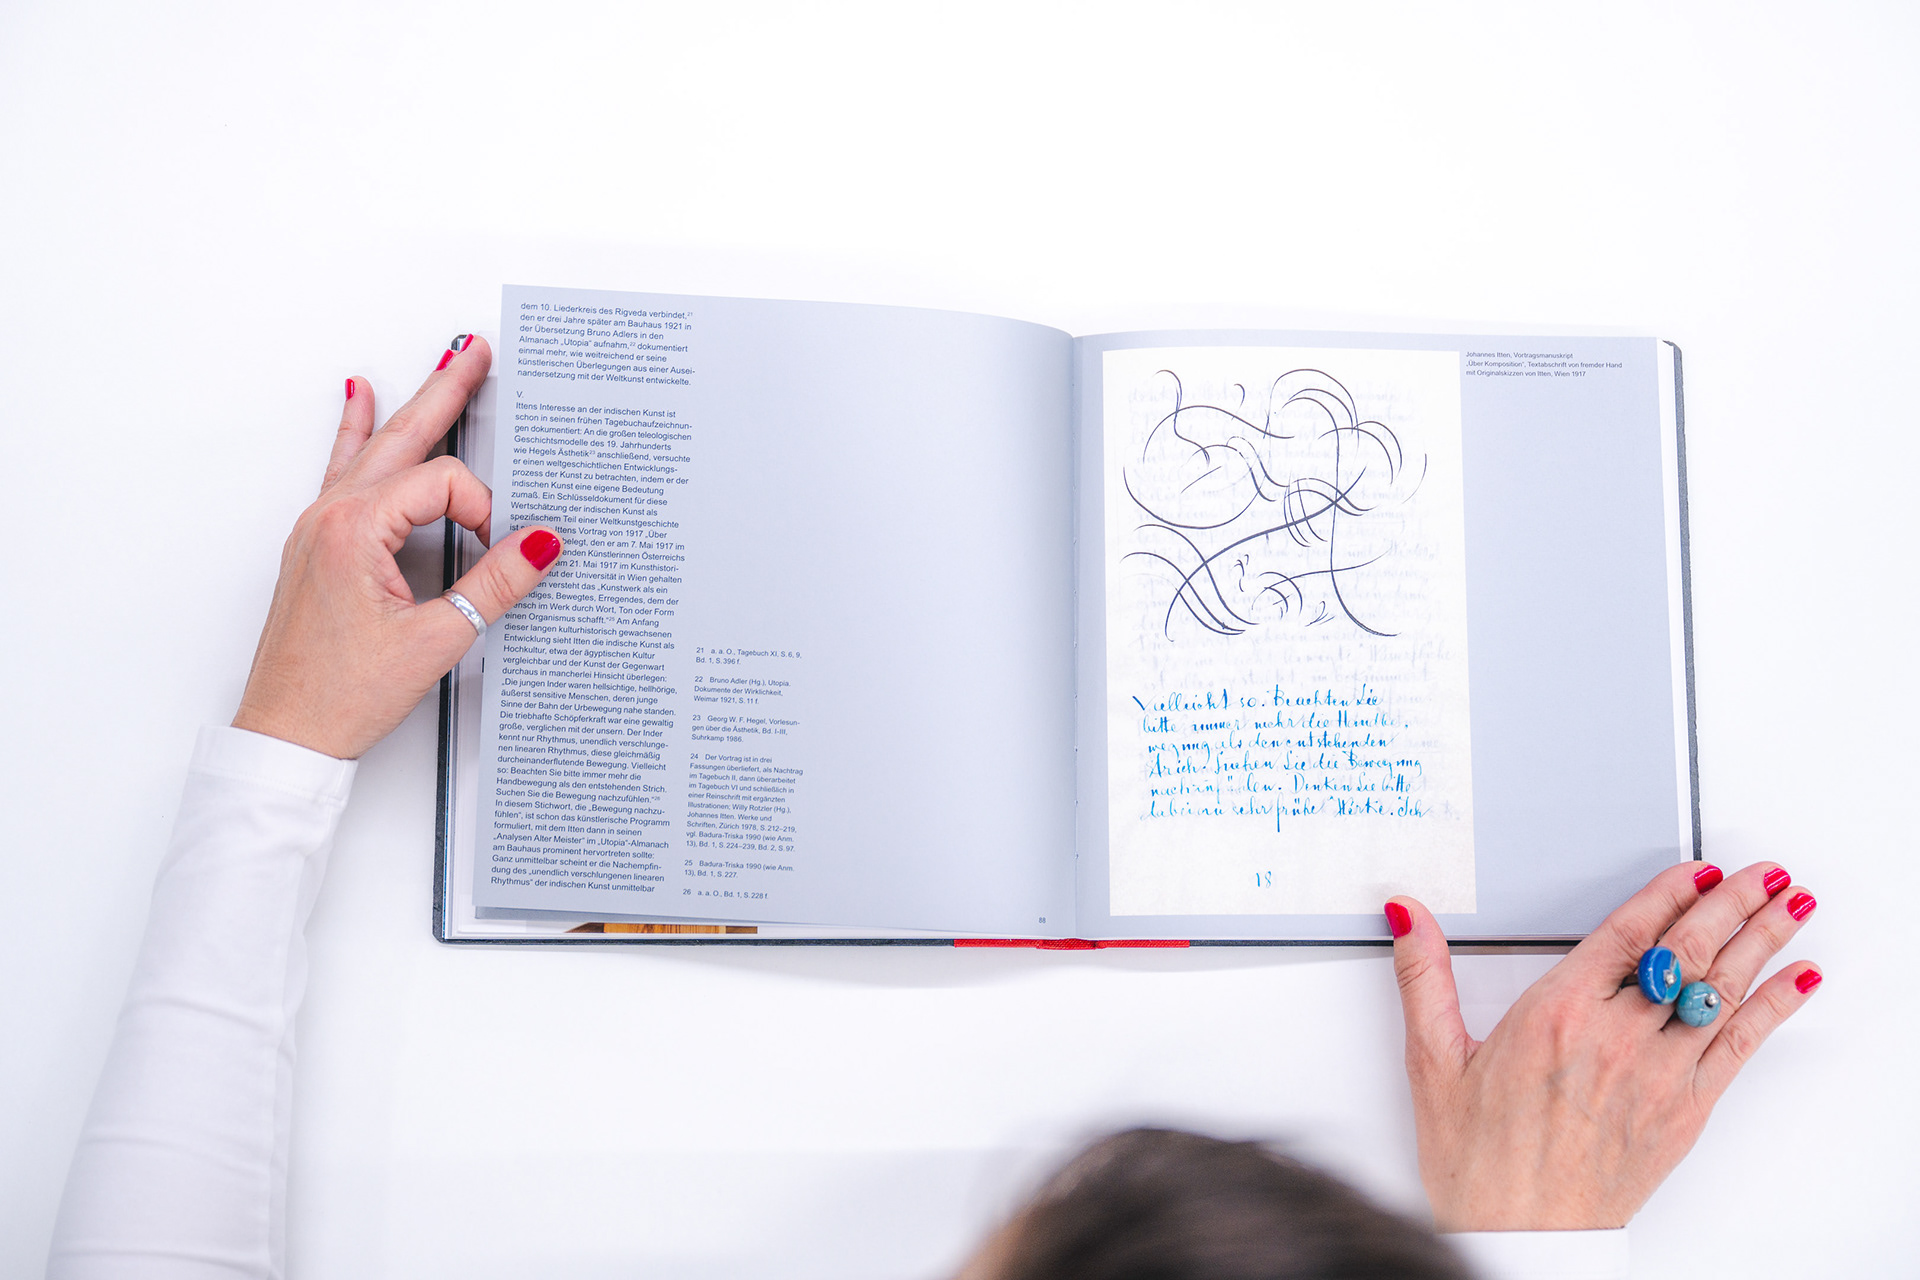 dem 10. Liederkreis des Rigveda verbindet,21
den er drei Jahre später am Bauhaus 1921 in
der Übersetzung Bruno Adlers in den
Almanach „Utopia“ aufnahm,22 dokumentiert
einmal mehr, wie weitreichend er seine
künstlerischen Überlegungen aus einer Ausei-
nandersetzung mit der Weltkunst entwickelte.
V.
Ittens Interesse an der indischen Kunst ist
schon in seinen frühen Tagebuchaufzeichnun-
gen dokumentiert: An die großen teleologischen
Geschichtsmodelle des 19. Jahrhunderts
wie Hegels Ästhetik23 anschließend, versuchte
er einen weltgeschichtlichen Entwicklungs-
prozess der Kunst zu betrachten, indem er der
indischen Kunst eine eigene Bedeutung
zumaß. Ein Schlüsseldokument für diese
Wertschätzung der indischen Kunst als
spezifischem Teil einer Weltkunstgeschichte
ist Ittens Vortrag von 1917 „Über
belegt, den er am 7. Mai 1917 im
enden Künstlerinnen Österreichs
am 21. Mai 1917 im Kunsthistori-
tut der Universität in Wien gehalten
en versteht das „Kunstwerk als ein
ndiges, Bewegtes, Erregendes, dem der
ensch im Werk durch Wort, Ton oder Form
einen Organismus schafft.“25 Am Anfang
dieser langen kulturhistorisch gewachsenen
Entwicklung sieht Itten die indische Kunst als
Hochkultur, etwa der ägyptischen Kultur
vergleichbar und der Kunst der Gegenwart
durchaus in mancherlei Hinsicht überlegen:
„Die jungen Inder waren hellsichtige, hellhörige,
äußerst sensitive Menschen, deren junge
Sinne der Bahn der Urbewegung nahe standen.
Die triebhafte Schöpferkraft war eine gewaltig
große, verglichen mit der unsern. Der Inder
kennt nur Rhythmus, unendlich verschlunge-
nen linearen Rhythmus, diese gleichmäßig
durcheinanderflutende Bewegung. Vielleicht
so: Beachten Sie bitte immer mehr die
Handbewegung als den entstehenden Strich.
Suchen Sie die Bewegung nachzufühlen.“26
In diesem Stichwort, die „Bewegung nachzu-
fühlen“, ist schon das künstlerische Programm
formuliert, mit dem Itten dann in seinen
„Analysen Alter Meister“ im „Utopia“-Almanach
am Bauhaus prominent hervortreten sollte:
Ganz unmittelbar scheint er die Nachempfin-
dung des „unendlich verschlungenen linearen
Rhythmus“ der indischen Kunst unmittelbar
21 a. a. O., Tagebuch XI, S. 6, 9,
Bd. 1, S. 396 f.
22 Bruno Adler (Hg.), Utopia.
Dokumente der Wirklichkeit,
Weimar 1921, S. 11 f.
23 Georg W. F. Hegel, Vorlesun-
gen über die Ästhetik, Bd. I-III,
Suhrkamp 1986.
24 Der Vortrag ist in drei
Fassungen überliefert, als Nachtrag
im Tagebuch II, dann überarbeitet
im Tagebuch VI und schließlich in
einer Reinschrift mit ergänzten
Illustrationen; Willy Rotzler (Hg.),
Johannes Itten. Werke und
Schriften, Zürich 1978, S. 212–219,
vgl. Badura-Triska 1990 (wie Anm.
13), Bd. 1, S. 224–239, Bd. 2, S. 97.
25 Badura-Triska 1990 (wie Anm.
13), Bd. 1, S. 227.
26 a. a. O., Bd. 1, S. 228 f.
88
Johannes Itten, Vortragsmanuskript
„Über Komposition“, Textabschrift von fremder Hand
mit Originalskizzen von Itten, Wien 1917
Vielleicht so. Beachten Sie
bitte immer mehr die Handbe-
wegung als den entstehenden
Strich. Suchen Sie die Bewegung
nachzufühlen. Denken Sie bitte
dabei an sehr frühe Werke. Ich
18